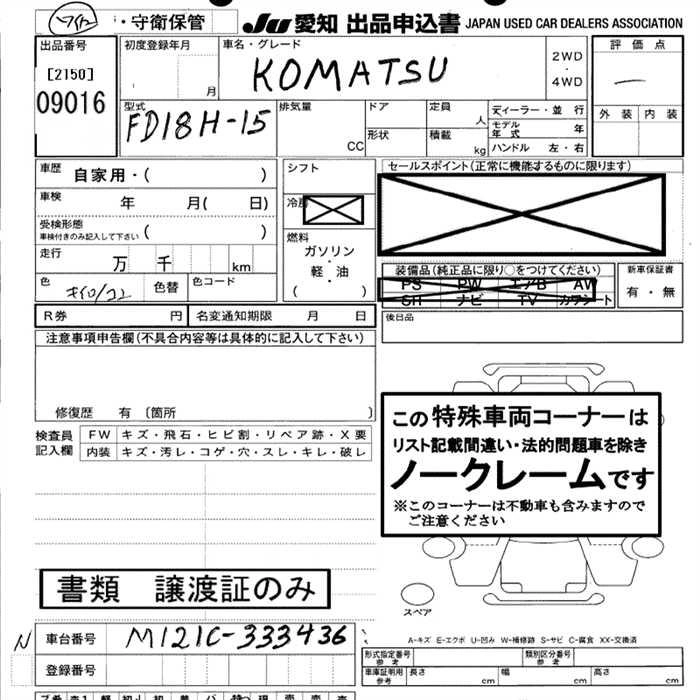 ・守衛保管 JU 愛知 出品申込書 JAPAN USED CAR DEALERS ASSOCIATION
出品番号 初度登録年月 車名・グレード 評価点
[2150] 月 KOMATSU 2WD・4WD
09016 外装 内装
型式 排気量 ドア 定員 ディーラー・並行
FD18H-15 人 モデル年式 年
CC 形状 積載 kg ハンドル 左・右
車歴 自家用・( ) シフト セールスポイント(正常に機能するものに限ります)
車検 年 月( 日)
受検形態 車検付きのみ記入して下さい ( ) 燃料
走行 万 千 km ガソリン・軽・油 ( )
装備品(純品に限り○をつけてください) 新車保証書
PS PW エアB AW 有・無
SR ナビ TV カワシート
色 キイロ/コン 色替 色コード
R券 円 名変通知期限 月 日 後日品
注意事項申告欄(不具合内容等は具体的に記入して下さい)
修復歴 有 〔箇所 〕
検査員記入欄 FW キズ・飛石・ヒビ割・リペア跡・X要
内装 キズ・汚レ・コゲ・穴・スレ・キレ・破レ
この特殊車両コーナーは
リスト記載間違い・法的問題車を除き
ノークレームです
※このコーナーは不動車も含みますので
ご注意ください
書類 譲渡証のみ
スペア
N 車台番号 M121C-333436
A-キズ E-エクボ U-凹み W-補修跡 S-サビ C-腐食 XX-交換済
登録番号
型式指定番号 参考 類別区分番号 参考
車庫証明用 参考 長さ cm 幅 cm 高さ cm